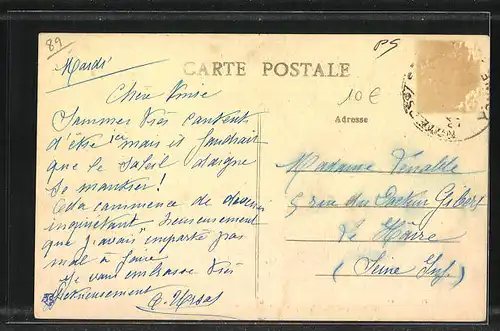 89
PS
Mardi
CARTE POSTALE
10 €
Adresse
Chère
Sommes très contents
d'être ici mais il faudrait
que le soleil daigne
se montrer !
Cela commence de devenir
inquiétant heureusement
que j'avais emporté pas
mal à faire
Je vous embrasse très
affectueusement
Madame
5 rue du Docteur Gibert
Le Hâvre
(Seine Inf.)